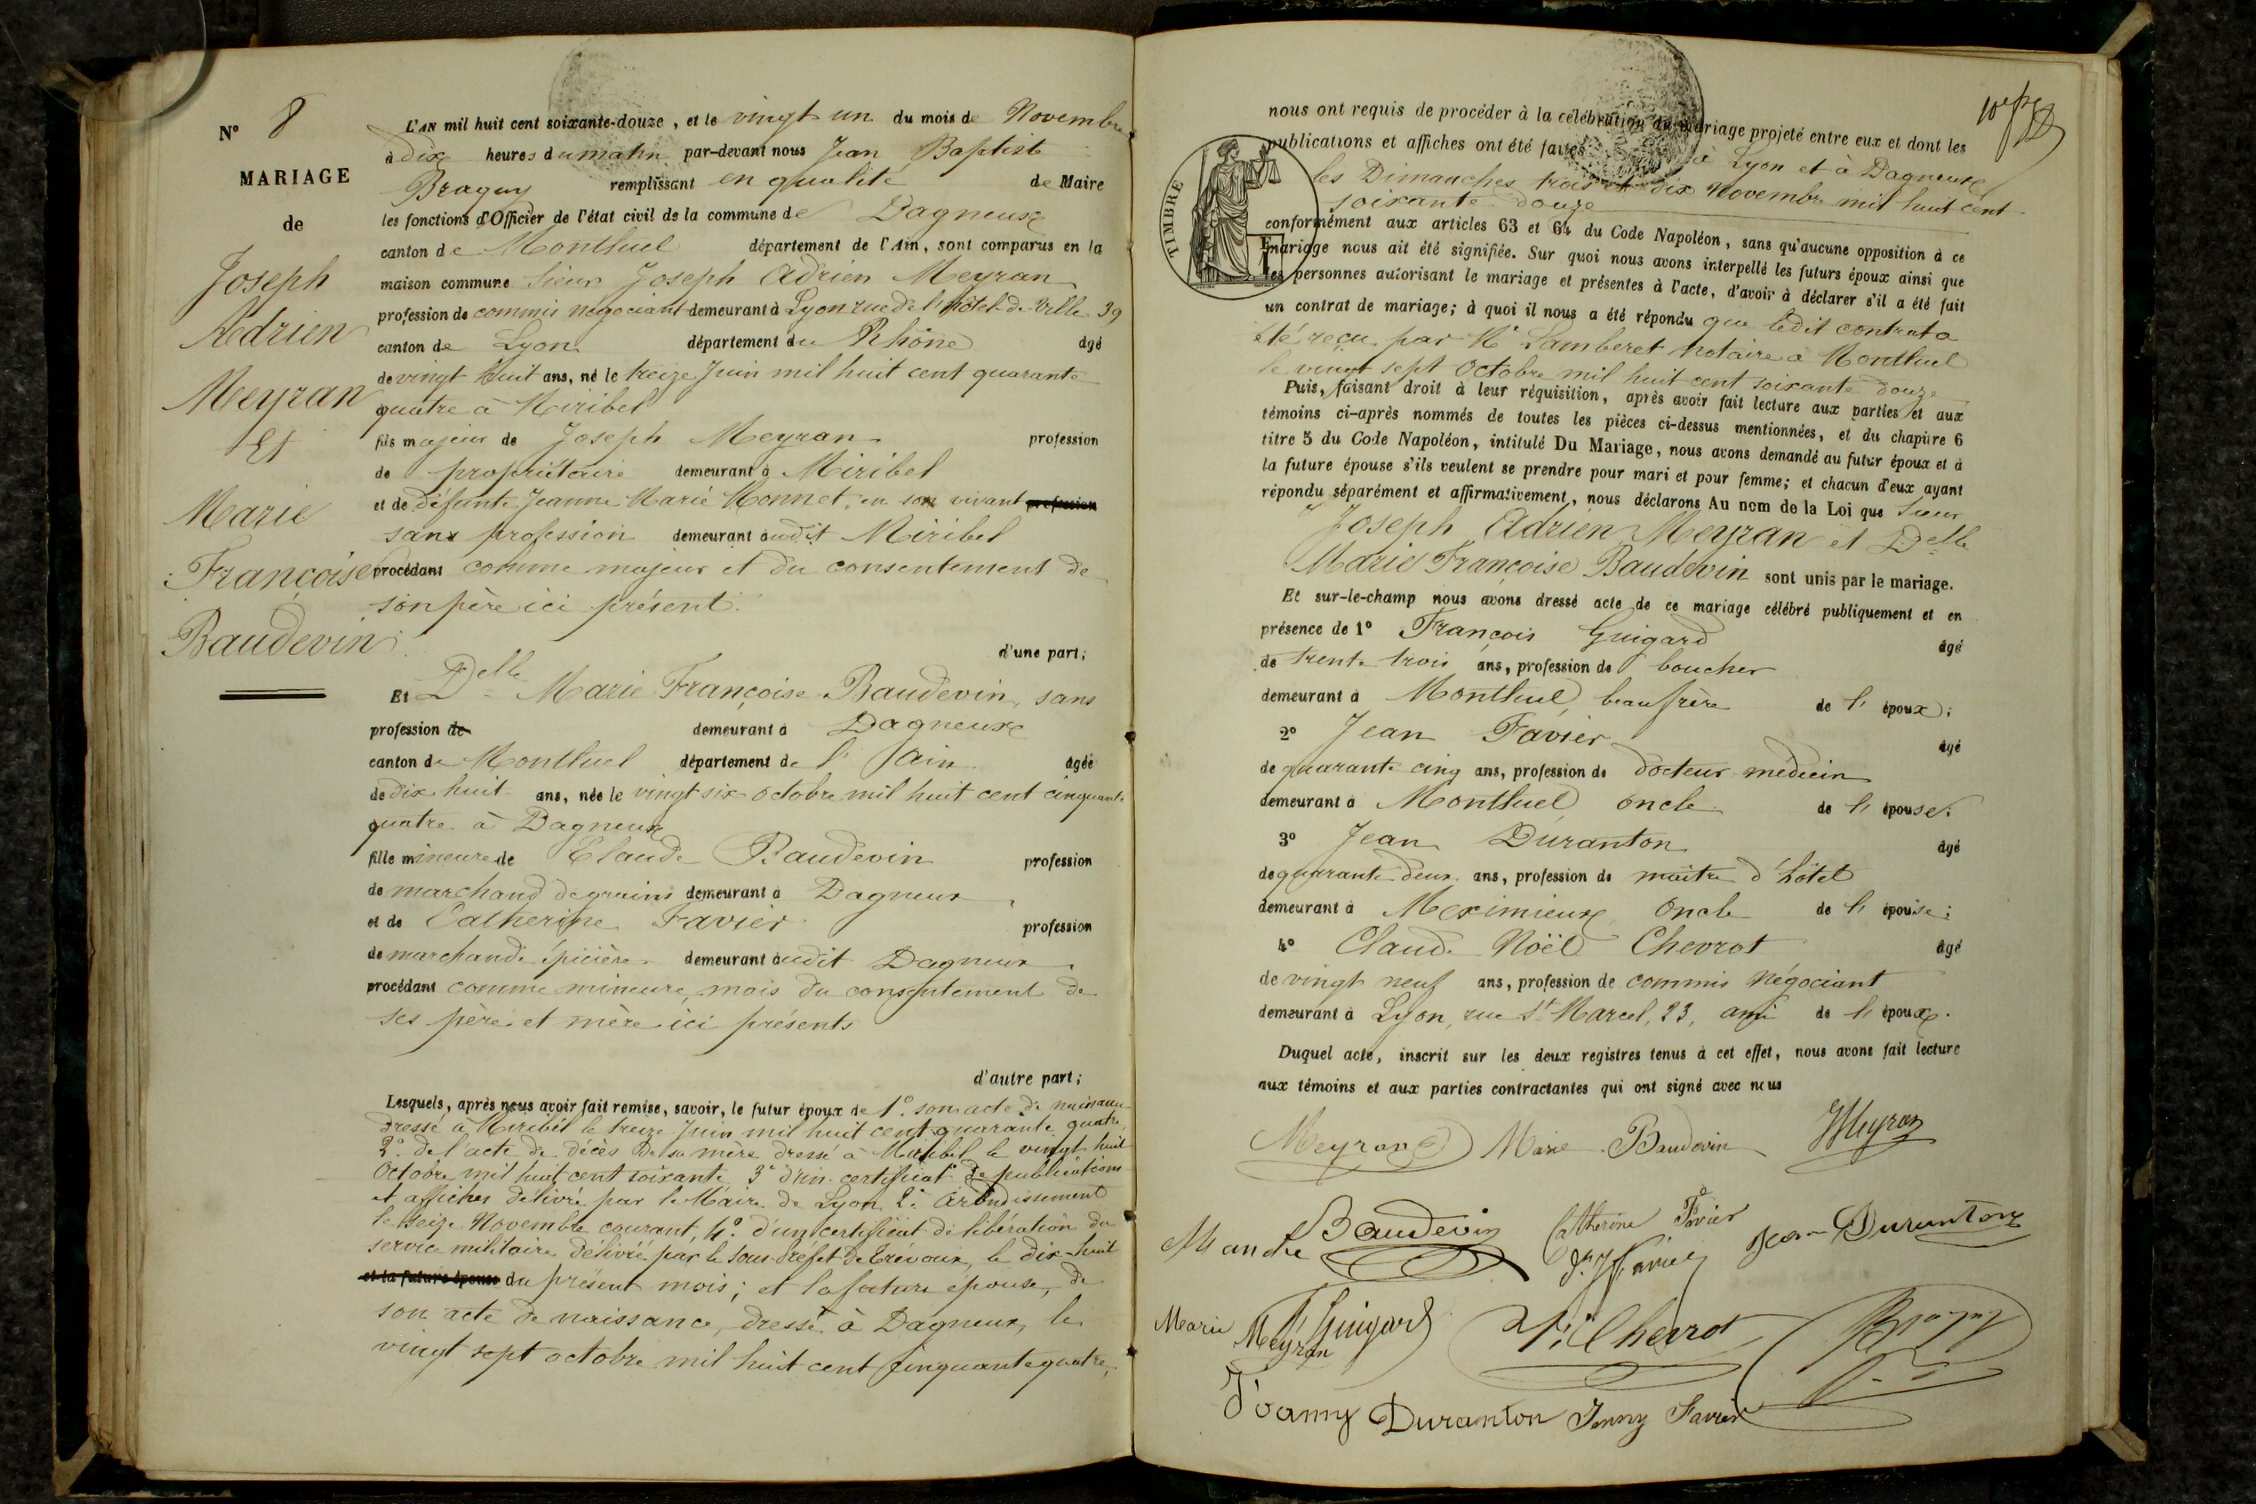 N° 8
MARIAGE
de
Joseph
Adrien
Meyran
Et
Marie
Françoise
Baudevin
L'AN mil huit cent soixante-douze, et le vingt un du mois de Novembre
à dix heures du matin par-devant nous Jean Baptiste
Braguy remplissant en qualité de Maire
les fonctions d'Officier de l'état civil de la commune de Dagneux
canton de Montluel département de l'Ain, sont comparus en la
maison commune Sieur Joseph Adrien Meyran
profession de commis négociant demeurant à Lyon rue de l'hôtel-de-Ville 39
canton de Lyon département du Rhône âgé
de vingt huit ans, né le treize Juin mil huit cent quarante
quatre à Miribel
fils majeur de Joseph Meyran profession
de propriétaire demeurant à Miribel
et de défunte Jeanne Marie Monnet, en son vivant profession
sans profession demeurant audit Miribel
procédant comme majeur et du consentement de
son père ici présent.
d'une part;
Et Delle Marie Françoise Baudevin, sans
profession de demeurant à Dagneux
canton de Montluel département de l'Ain âgée
de dix huit ans, née le vingt six octobre mil huit cent cinquante
quatre à Dagneux
fille mineure de Claude Baudevin profession
de marchand de grains demeurant à Dagneux,
et de Catherine Favier profession
de marchande épicière demeurant audit Dagneux
procédant comme mineure, mais du consentement de
ses père et mère ici présents
d'autre part;
Lesquels, après nous avoir fait remise, savoir, le futur époux de 1° son acte de naissance
dressé à Miribel le treize Juin mil huit cent quarante quatre,
2° de l'acte de décès de sa mère dressé à Miribel le vingt huit
Octobre mil huit cent soixante 3° d'un certificat de publications
et affiches délivré par le Maire de Lyon 2e Arondissement
le seize Novembre courant, 4° d'un certificat de libération du
service militaire délivré par le Sous-Préfet de Trévoux, le dix-huit
et la future épouse du présent mois; et la future épouse, de
son acte de naissance, dressé à Dagneux, le
vingt sept octobre mil huit cent cinquante quatre,
nous ont requis de procéder à la célébration du mariage projeté entre eux et dont les
publications et affiches ont été faites à Lyon et à Dagneux
les Dimanches trois et dix Novembre mil huit cent
soixante douze
TIMBRE
conformément aux articles 63 et 64 du Code Napoléon, sans qu'aucune opposition à ce
mariage nous ait été signifiée. Sur quoi nous avons interpellé les futurs époux ainsi que
les personnes autorisant le mariage et présentes à l'acte, d'avoir à déclarer s'il a été fait
un contrat de mariage; à quoi il nous a été répondu que ledit contrat a
été reçu par Me Lamberet notaire à Montluel
le vingt sept Octobre mil huit cent soixante douze
Puis, faisant droit à leur réquisition, après avoir fait lecture aux parties et aux
témoins ci-après nommés de toutes les pièces ci-dessus mentionnées, et du chapitre 6
titre 5 du Code Napoléon, intitulé Du Mariage, nous avons demandé au futur époux et à
la future épouse s'ils veulent se prendre pour mari et pour femme; et chacun d'eux ayant
répondu séparément et affirmativement, nous déclarons Au nom de la Loi que Sieur
Joseph Adrien Meyran et Delle
Marie Françoise Baudevin sont unis par le mariage.
Et sur-le-champ nous avons dressé acte de ce mariage célébré publiquement et en
présence de 1° François Guigard âgé
de trente trois ans, profession de boucher
demeurant à Montluel, beau frère de l'époux;
2° Jean Favier âgé
de quarante cinq ans, profession de docteur médecin
demeurant à Montluel oncle de l'épouse;
3° Jean Duranton âgé
de quarante deux ans, profession de maître d'hôtel
demeurant à Meximieux Oncle de l'épouse;
4° Claude Noël Chevrot âgé
de vingt neuf ans, profession de commis négociant
demeurant à Lyon, rue St Marcel, 23, ami de l'époux.
Duquel acte, inscrit sur les deux registres tenus à cet effet, nous avons fait lecture
aux témoins et aux parties contractantes qui ont signé avec nous
Meyran Marie Baudevin JMeyran
Baudevin Catherine Favier Jean Duranton
Dr J Favier
Marie Meyran Guigard Chevrot Braguy
Joanny Duranton Jenny Favier